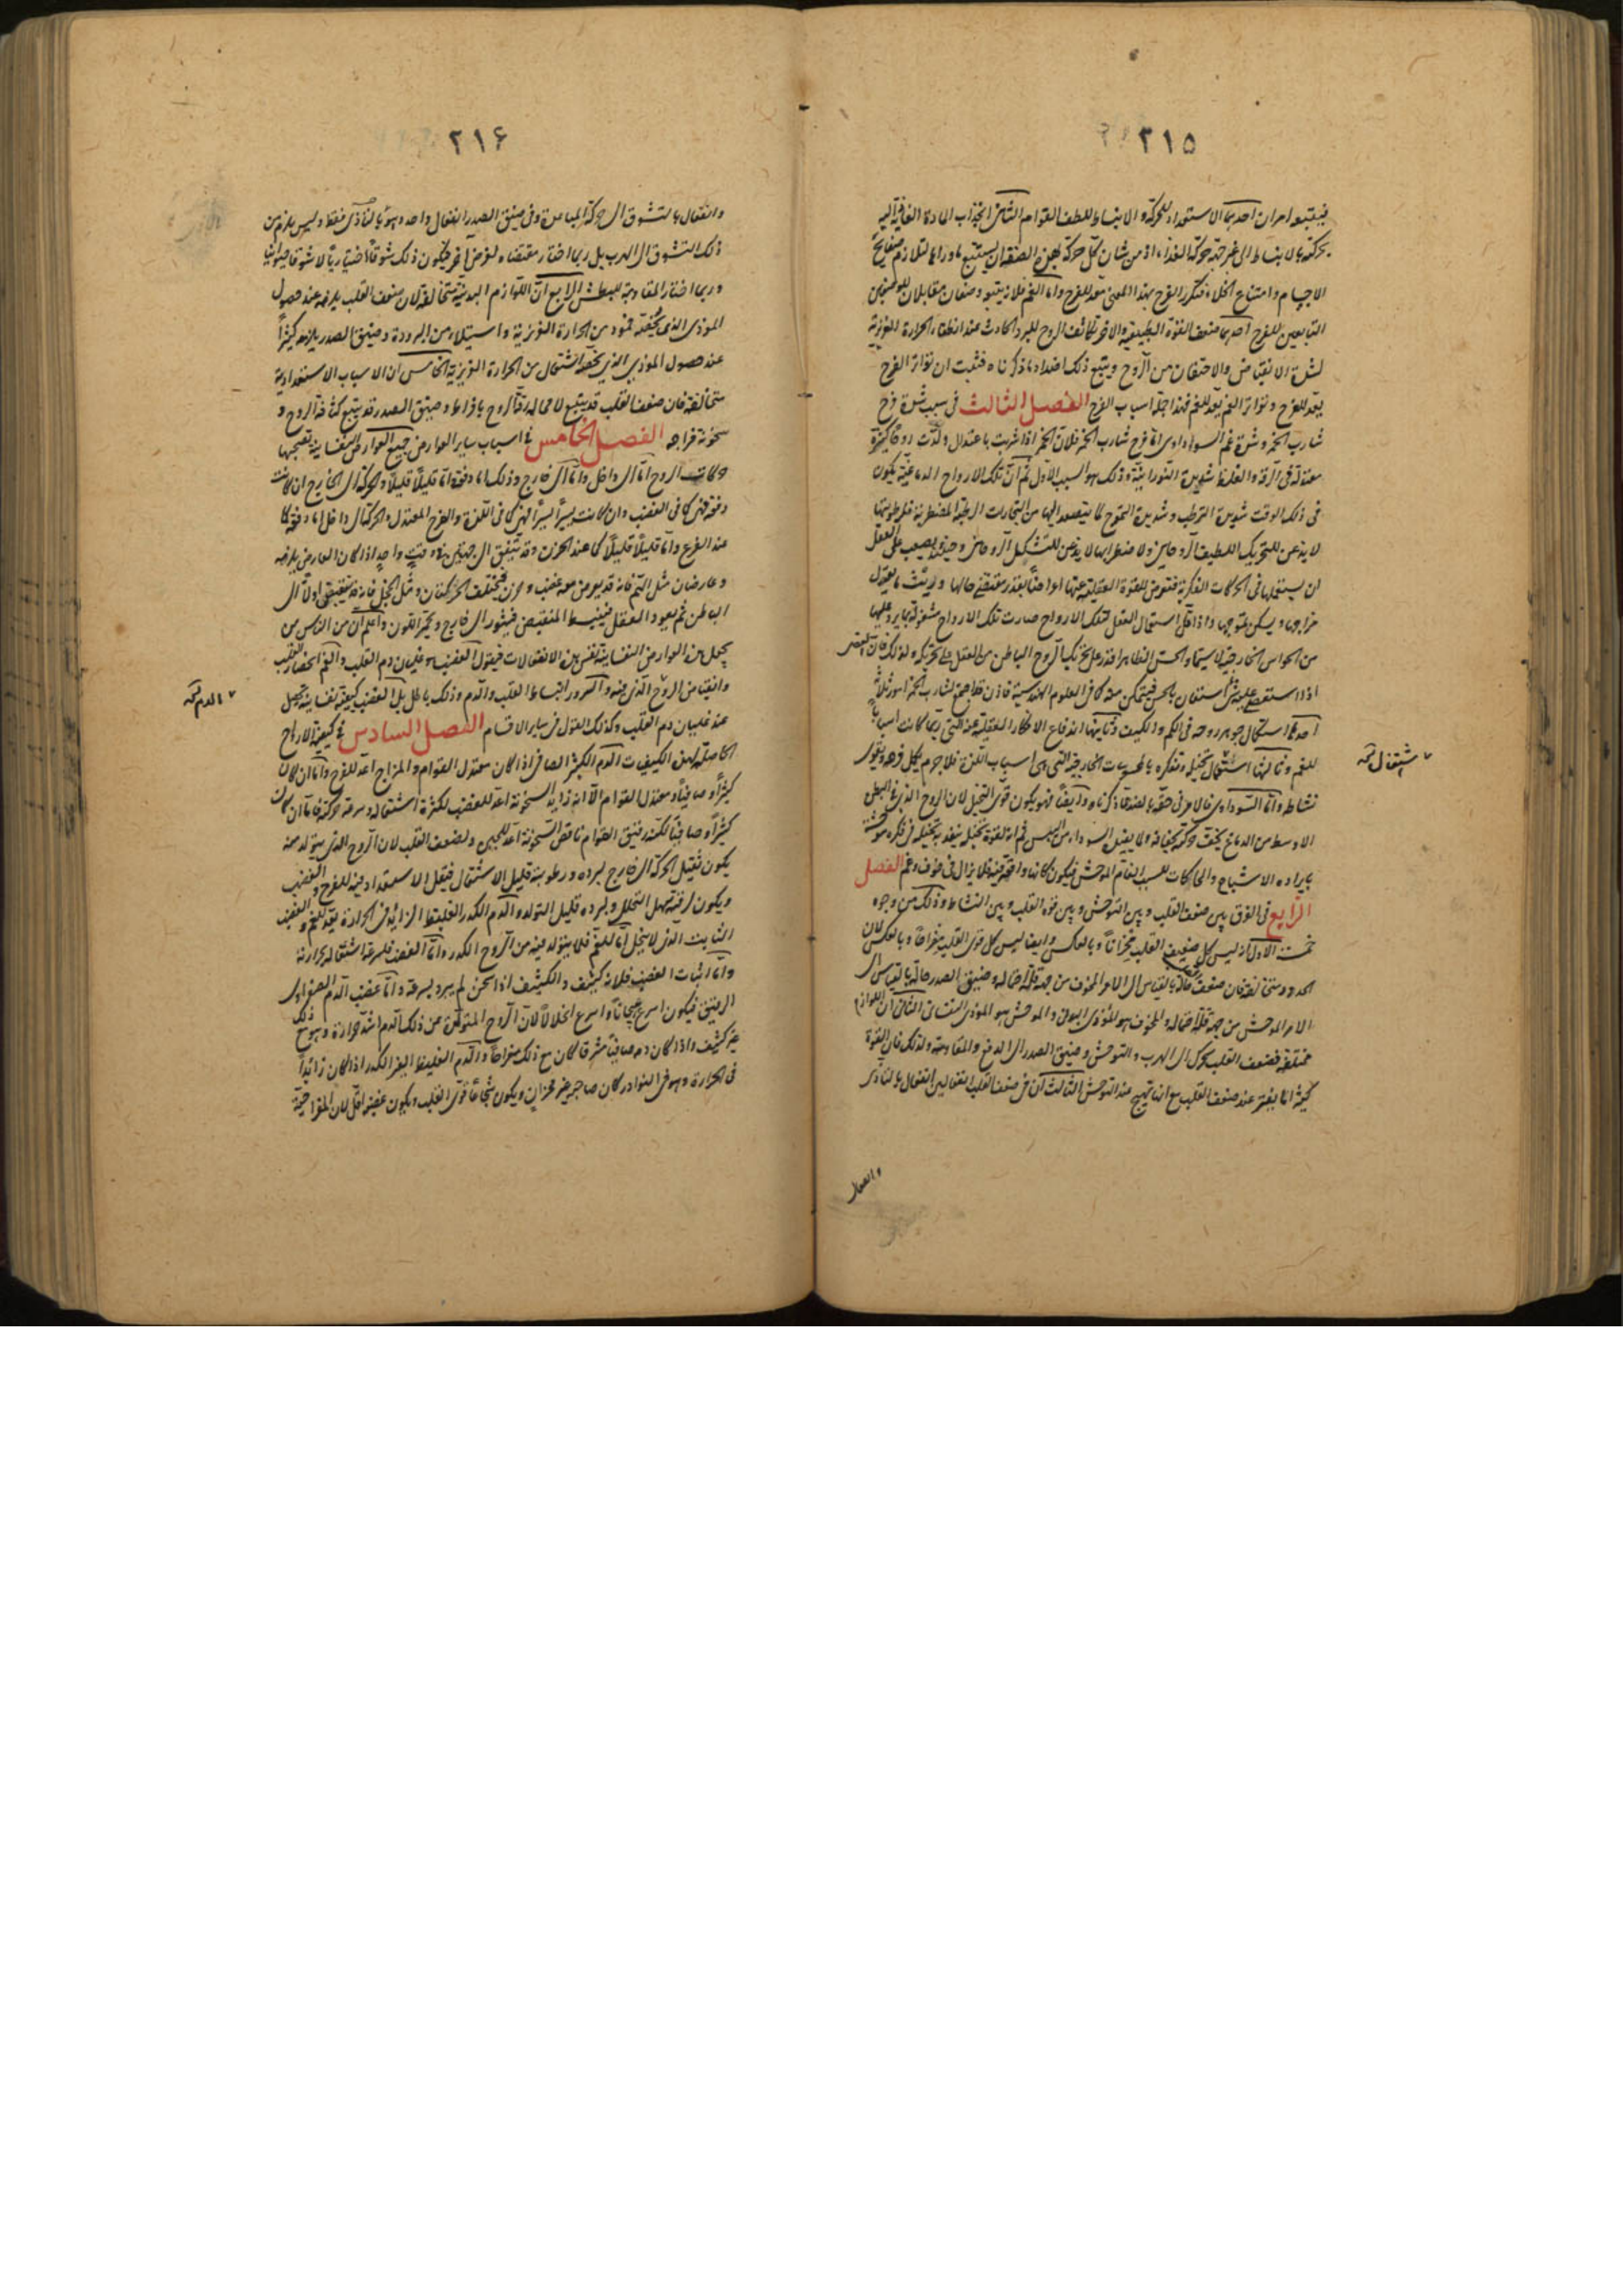 ٢١٥
فيتبعه امران احدهما الاستعداد للحركة والانبساط للطف القوام الثانى انجذاب المادة الغاذية اليه
بحركته بالانبساط الى غير جهة حركة الغذاء اذ من شان كل حركة بهذه الصفة ان يستتبع ما وراءها لتلازم صفايح
الاجسام وامتناع الخلاء فتكرر الفرح بهذا المعنى معد للفرح واما الغم فلاز يتبعه وصفان مقابلان للوصفين
التابعين للفرح احدهما ضعف القوة الطبيعية والاخر تكاثف الروح للبرد الحادث عند انطفاء الحرارة الغريزية
لشدة الانقباض والاحتقان من الروح ويتبع ذلك اضداد ما ذكرناه فثبت ان تواتر الفرح
يعد للفرح وتواتر الغم يعد للغم فهذا جملة اسباب الفرح الفصل الثالث فى سبب شدة فرح
شارب الخمر وشدة غم السوداوى اما فرح شارب الخمر فلان الخمر اذا شربت باعتدال ولدت روحا كثيرة
معتدلة فى الرقة والغلظ شديدة النورانية وذلك هو السبب الاول ثم ان تلك الارواح الدماغية يكون
فى ذلك الوقت شديدة الترطب وشديدة التموج لما يتصعد اليها من البخارات الرطبة المضطربة فلرطوبتها
لا يذعن للتحريك اللطيف الروحانى ولاضطرابها لا يذعن للتشكيل الروحانى وحينئذ يصعب على العقل
ان يستعملها فى الحركات الفكرية فتعرض للقوة العقلية عنها اعراضا بقدر مقتضى حالها
مزاجها ويسكن تموجها واذا قل استعمال العقل لتلك الارواح صارت تلك الارواح مشغولة بما يرد عليها
من الحواس الخارجية لاسيما والحس الظاهر اقدر على تحريك الروح الباطن من العقل على تحريكه ولذلك فان العقل
اذا استعصى عليه شئ استعان بالحس فيتمكن منه كما فى العلوم الهندسية فاذن قد اجتمع لشارب الخمر امور ثلاثة
احدها استكمال جوهر روحه فى الكم والكيف وثانيها اندفاع الافكار العقلية عنه التى ربما كانت اسبابا
للغم وثالثها اشتغال تخيله وتفكره بالمحسوسات الخارجية التى هى اسباب اللذة فلا جرم يكمل فرحه ويقوى
نشاطه واما السوداوى فالامر فى حقه بالضد مما ذكرناه وايضا فهو يكون قوى التخيل لان الروح الذى فى البطن
الاوسط من الدماغ يخف حركته لجفافه ولا يقبل السوداء من اليبس ثم انه لقوة تخيله ينفذ بتخيله فى فكره
بايراده الاشباح والمحاكات للسبب الغام الموحش فيكون كانها واقعة فلا يزال فى خوف وغم الفصل
الرابع فى الفرق بين ضعف القلب وبين التوحش وبين قوة القلب وبين النشاط وذلك من وجوه
خمسة الاول انه ليس كل ضعيف القلب محزانا وبالعكس وايضا ليس كل قوى القلب مفراحا وبالعكس لان
الحدود متخالفة فان ضعف القلب حالة بالقياس الى الامر المخوف من جهة قلة احتماله وضيق الصدر حالة بالقياس الى
الامر الموحش من جهة قلة احتماله والمخوف هو المؤذى البدنى والموحش هو المؤذى النفسانى الثانى ان اللوازم
مختلفة فضعف القلب يحرك الى الهرب والتوحش وضيق الصدر الى الدفع والمقاومة ولذلك فان القوة
كثيرا ما يفتر عند ضعف القلب مع انها تهيج عند التوحش الثالث ان فى ضعف القلب انفعالين انفعال بالتاذى
وانفعال
اشتغال نسخه
٢١۶
وانفعال بالتشوق الى حركة المباعدة وفى ضيق الصدر انفعال واحد وهو بالتأذى فقط وليس يلزم من
ذلك التشوق الى الهرب بل ربما اختار مقتضاه لغرض آخر فيكون ذلك شوقا اختياريا لا شوقا حيوانيا
وربما اختار المقاومة للبطش الرابع ان اللوازم البدنية متخالفة لان ضعف القلب يلزمه عند حصول
المؤذى الذى يخصه خمود من الحرارة الغريزية واستيلاء من البرودة وضيق الصدر يلزمه كثيرا
عند حصول المؤذى الذى يخصه اشتعال من الحرارة الغريزية الخامس ان الاسباب الاستعدادية
متخالفة فان ضعف القلب قد يتبع لا محالة رقة الروح بافراط وضيق الصدر قد يتبع كثافة الروح و
سخونة مزاجه الفصل الخامس فى اسباب ساير العوارض جميع العوارض النفسانية تصحبها
حركات الروح اما الى داخل واما الى خارج وذلك اما دفعة اما قليلا قليلا والحركة الى الخارج ان كانت
دفعة فهى كما فى الغضب وان كانت يسيرا يسيرا فهى كما فى اللذة والفرح المعتدل والحركة الى داخل اما دفعة كما
عند الفزع واما قليلا قليلا كما عند الحزن وقد يتفق الى جهتين فى وقت واحد اذا كان العارض يلزمه
عارضان مثل الهم فانه قد يعرض معه غضب وحزن فتختلف الحركتان ومثل الخجل فانه قد ينقبض اولا الى
الباطن ثم يعود العقل فينبسط المنقبض فيثور الى خارج ويحمر اللون واعلم ان من الناس من
يجعل هذه العوارض النفسانية نفس هذه الانفعالات فيقول الغضب هو غليان دم القلب والغم انحصار القلب
وانقباض الروح الذى فيه والسرور انبساط القلب والدم وذلك باطل بل الغضب كيفية نفسانية تحصل
عند غليان دم القلب وكذلك القول فى ساير الاقسام الفصل السادس فى كيفية الارواح
الحاصلة لهذه الكيفيات الدم الكثير الصافى اذا كان معتدل القوام والمزاج اعد للفرح واما ان كان
كثيرا وصافيا ومعتدل القوام الا انه زايد السخونة اعد للغضب لكثرة اشتعاله وسرعة حركته فاما ان كان
كثيرا وصافيا لكنه رقيق القوام ناقص السخونة اعد للجبن ولضعف القلب لان الروح الذى يتولد منه
يكون ثقيل الحركة الى خارج لبرده ورطوبته قليل الاشتعال فيقل الاستعداد فيه للفرح والغضب
ويكون لرقته سهل التحلل ولبرده قليل التولد والدم الكدر الغليظ الزايد فى الحرارة يعد للغم والغضب
الثابت الذى لا ينحل اما للغم فلما يتولد فيه من الروح الكدر واما الغضب فلسرعة اشتعاله لحرارته
واما اثبات الغضب فلانه كثيف والكثيف اذا سخن لم يبرد بسرعة واما غضب الدم الصفراوى
الرقيق فيكون اسرع هيجانا واسرع انحلالا لان الروح المتولد عن ذلك الدم اشد حرارة وهو مع ذلك
غير كثيف واذا كان دمه صافيا مشرقا كان مع ذلك مفراحا والدم الغليظ الغير الكدر اذا كان زائدا
فى الحرارة وهو فى النوادر كان صاحبه غير محزان ويكون شجاعا قوى القلب ويكون غضبه اقل لان المفراحية
الدم نسخه